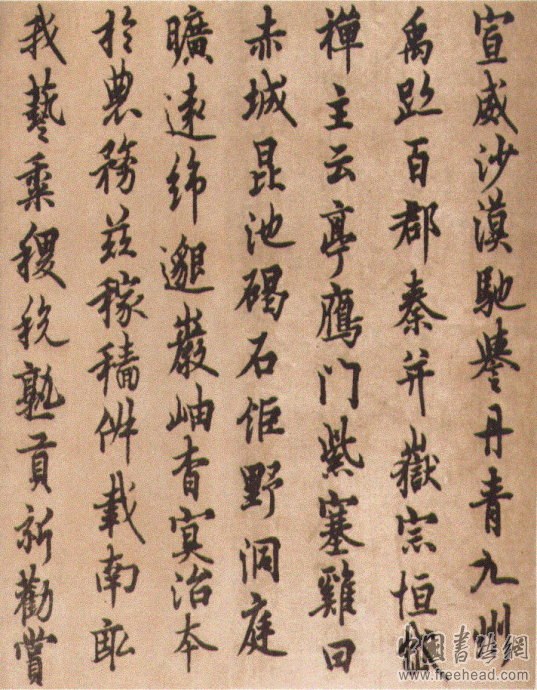 宣威沙漠馳譽丹青九州
禹跡百郡秦并嶽宗恒岱
禪主云亭鴈門紫塞雞田
赤城昆池碣石鉅野洞庭
曠遠綿邈巖岫杳冥治本
於農務茲稼穡俶載南畝
我藝黍稷稅熟貢新勸賞
中国書法網
www.freehead.com